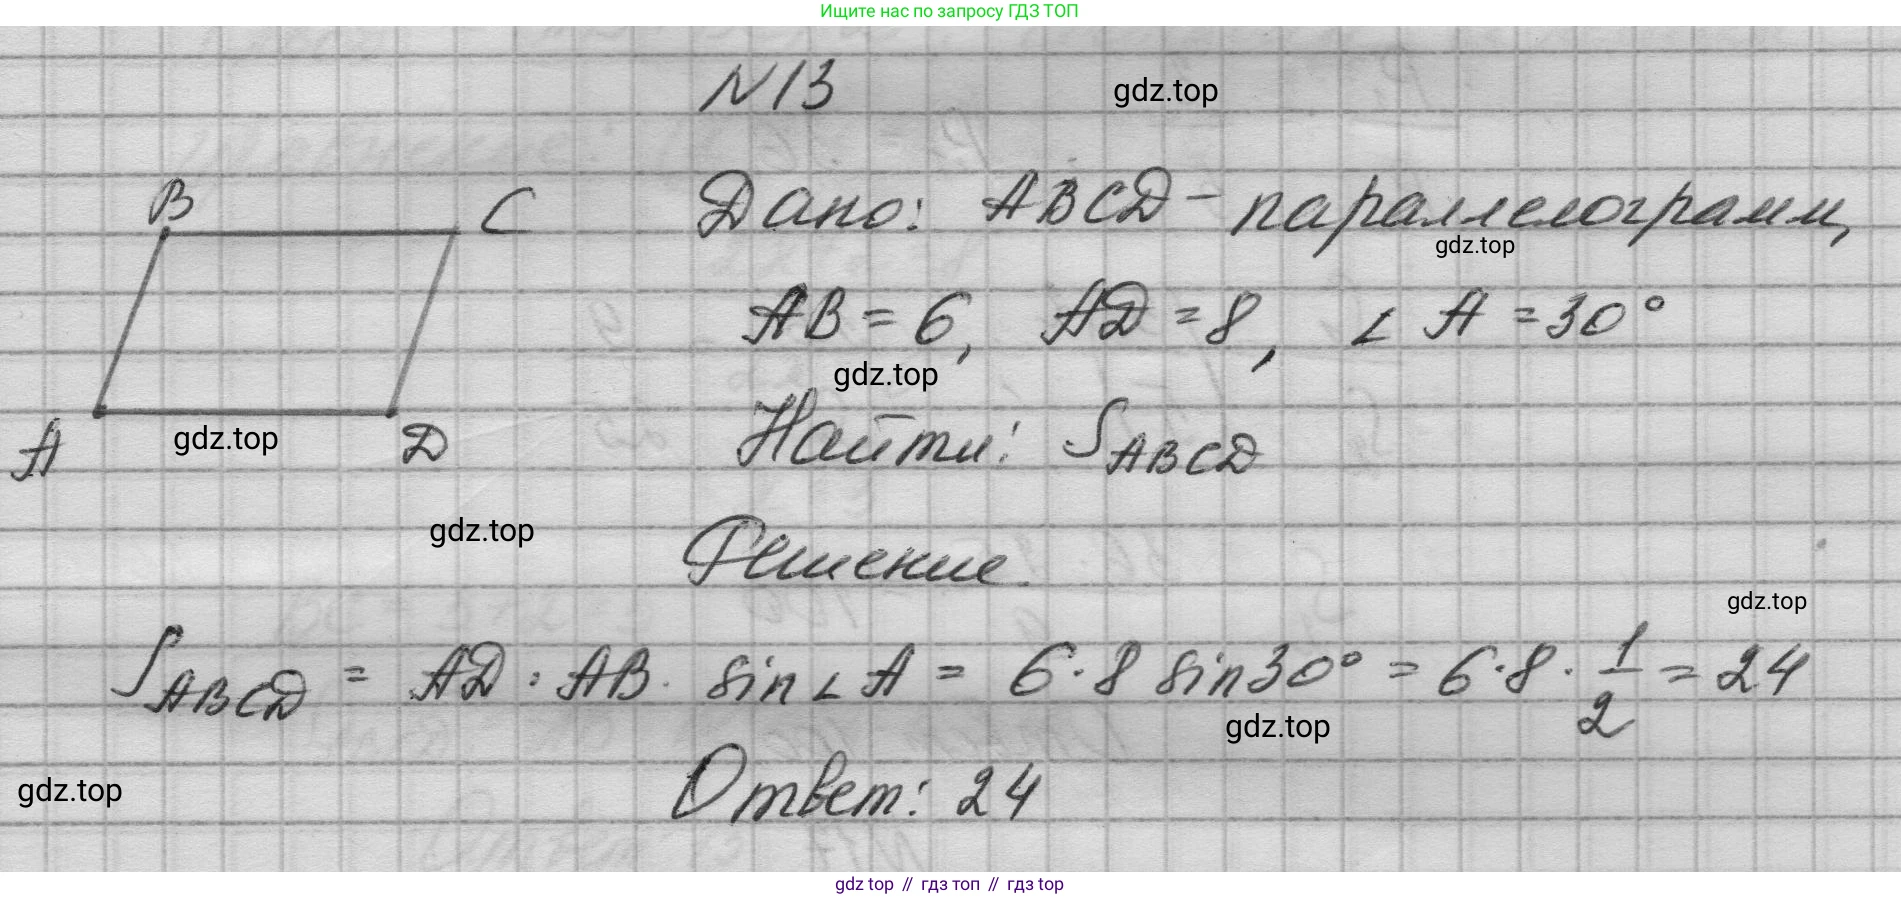 Ищите нас по запросу ГДЗ ТОП
N 13
gdz.top
B C
Дано: ABCD - параллелограмм,
gdz.top
AB = 6, AD = 8, ∠ A = 30°
gdz.top
A D
gdz.top
Найти: S ABCD
gdz.top
Решение.
gdz.top
S ABCD = AD · AB · sin ∠ A = 6 · 8 sin 30° = 6 · 8 · 1/2 = 24
gdz.top
Ответ: 24
gdz.top
gdz top // гдз топ // гдз top